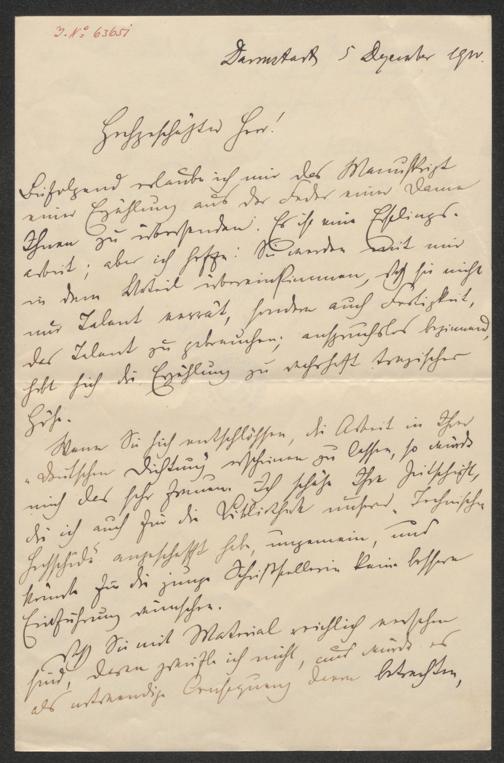 J. No 6365i
Darmstadt 5 Dezember
Hochgeschätzter Herr!
Beifolgend erlaube ich mir das Manuskript
einer Erzählung aus der Feder einer Dame
Ihnen zu übersenden. Es ist eine Erstlings-
arbeit; aber ich hoffe: Sie werden mit mir
in dem Urteil übereinstimmen, daß sie nicht
nur Talent verrät, sondern auch Fertigkeit,
das Talent zu gebrauchen; anspruchslos beginnend,
hebt sich die Erzählung zu wahrhaft tragischer
Höhe.
Wenn Sie sich entschlössen, die Arbeit in Ihrer
"Deutschen Dichtung" erscheinen zu lassen, so würde
mich das sehr freuen. Ich schätze Ihre Zeitschrift,
die ich auch für die Bibliothek unserer Technischen
Hochschule angeschafft habe, ungemein, und
könnte für die junge Schriftstellerin keine bessere
Einführung wünschen.
Daß Sie mit Material reichlich versehen
sind, daran zweifle ich nicht, und würde es
als notwendige Consequenz davon betrachten,